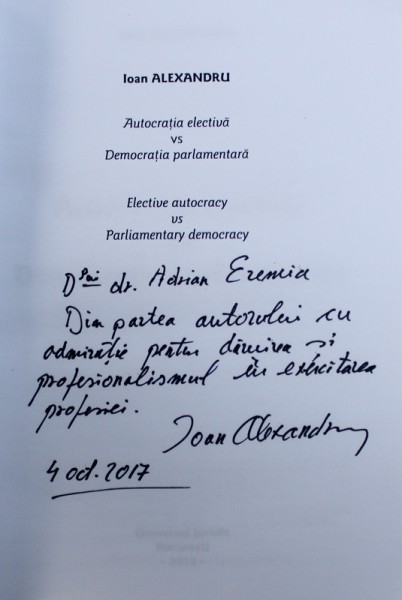 Ioan ALEXANDRU
Autocrația electivă
vs
Democrația parlamentară
Elective autocracy
vs
Parliamentary democracy
Dlui dr. Adrian Eremia
Din partea autorului cu
admirație pentru dăruirea și
profesionalismul în exercitarea
profesiei.
Ioan Alexandru
4 oct. 2017
Universul Juridic
București